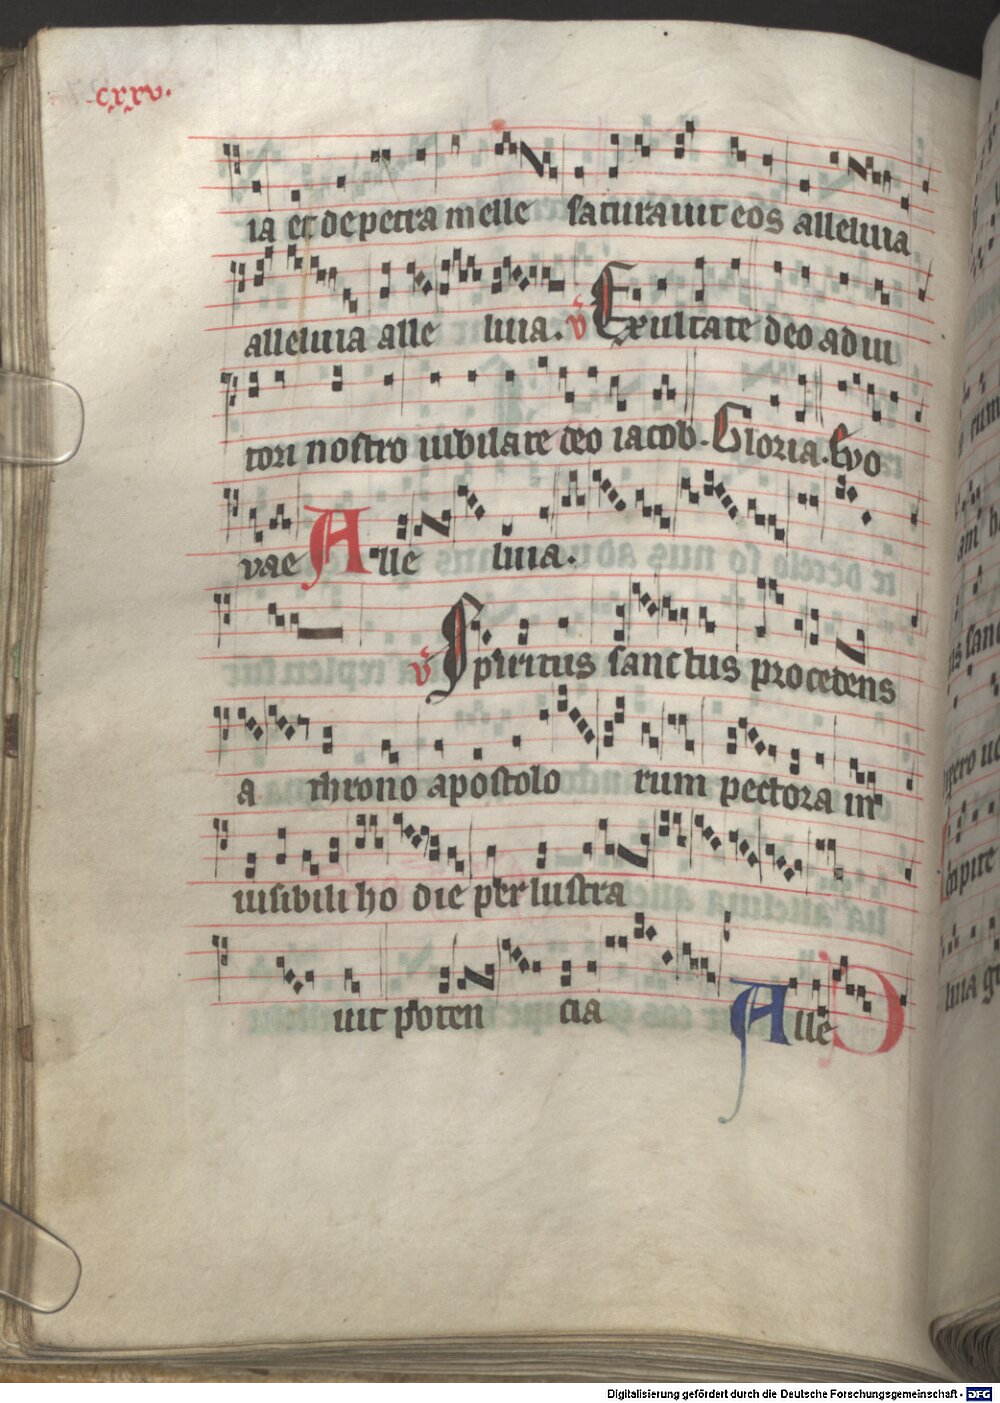 cxxv.
ia et de petra melle saturauit eos alleluia
alleluia alle luia. v Exultate deo adiu
tori nostro iubilate deo iacob. Gloria. Evo
vae Alle luia.
v Spiritus sanctus procedens
a throno apostolo rum pectora in
uisibili ho die perlustra
uit poten cia Alle
Digitalisierung gefördert durch die Deutsche Forschungsgemeinschaft - DFG